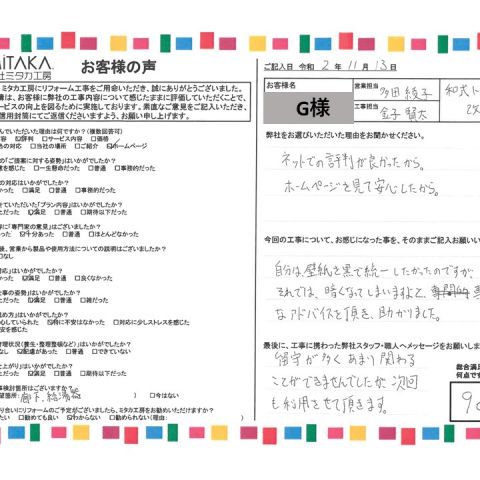 MiTAKA
社ミタカ工房
お客様の声
ミタカ工房にリフォーム工事をご用命いただき、誠にありがとうございました。
様に、お客様に弊社の工事内容について感じたままに評価していただくことで、
ービスの向上を図るために実施しております。素直なご意見をご記入いただき、
信用封筒にてご返信くださいますよう、お願い申し上げます。
んでいただいた理由は何ですか？(複数回答可)
☑評判 □サービス内容 □価格
の対応 □当社の場所 □ご紹介 ☑ホームページ
の「ご提案に対する姿勢」はいかがでしたか？
を感じた □一生懸命だった □普通 □事務的だった
の対応はいかがでしたか？
だった □満足 □普通 □事務的だった
せていただいた「プラン内容」はいかがでしたか？
だった ☑満足 □普通 □期待以下だった
に「専門家の意見」はございましたか？
った ☑十分あった □普通 □ほとんどなかった
後、営業から製品や使用方法についての説明はございましたか？
□なし
対応」はいかがでしたか？
だった ☑満足 □普通 □良くなかった
仕事の姿勢」はいかがでしたか？
だった ☑満足 □普通 □雑だった
め方」はいかがでしたか？
心していられた ☑特に不安はなかった □対応に少しストレスを感じた
安を感じた
管理状況(養生・整理整頓など)」はいかがでしたか？
なし ☑配慮があった □普通 □できていない
上がり」はいかがでしたか？
だった □満足 □普通 □期待以下だった
事検討箇所はございますか？
望箇所: 廊下、給湯器 ) □今はない
り合いにリフォームのご予定がございましたら、ミタカ工房をお勧めいただけますか？
ご記入日 令和 2 年 11 月 13 日
お客様名
G様
営業担当
多田 綾子
工事担当
金子 賢太
和式ト
改
弊社をお選びいただいた理由をお聞かせください。
ネットでの評判が良かったから。
ホームページを見て安心したから。
今回の工事について、お感じになった事を、そのままご記入お願いい
自分は壁紙を黒で統一したかったのですが、
それでは、暗くなってしまいますよと、
なアドバイスを頂き、助かりました。
最後に、工事に携わった弊社スタッフ・職人へメッセージをお願いし
留守が多く あまり関わる
ことができませんでしたが 次回
も利用させて頂きます。
総合満足
何点です